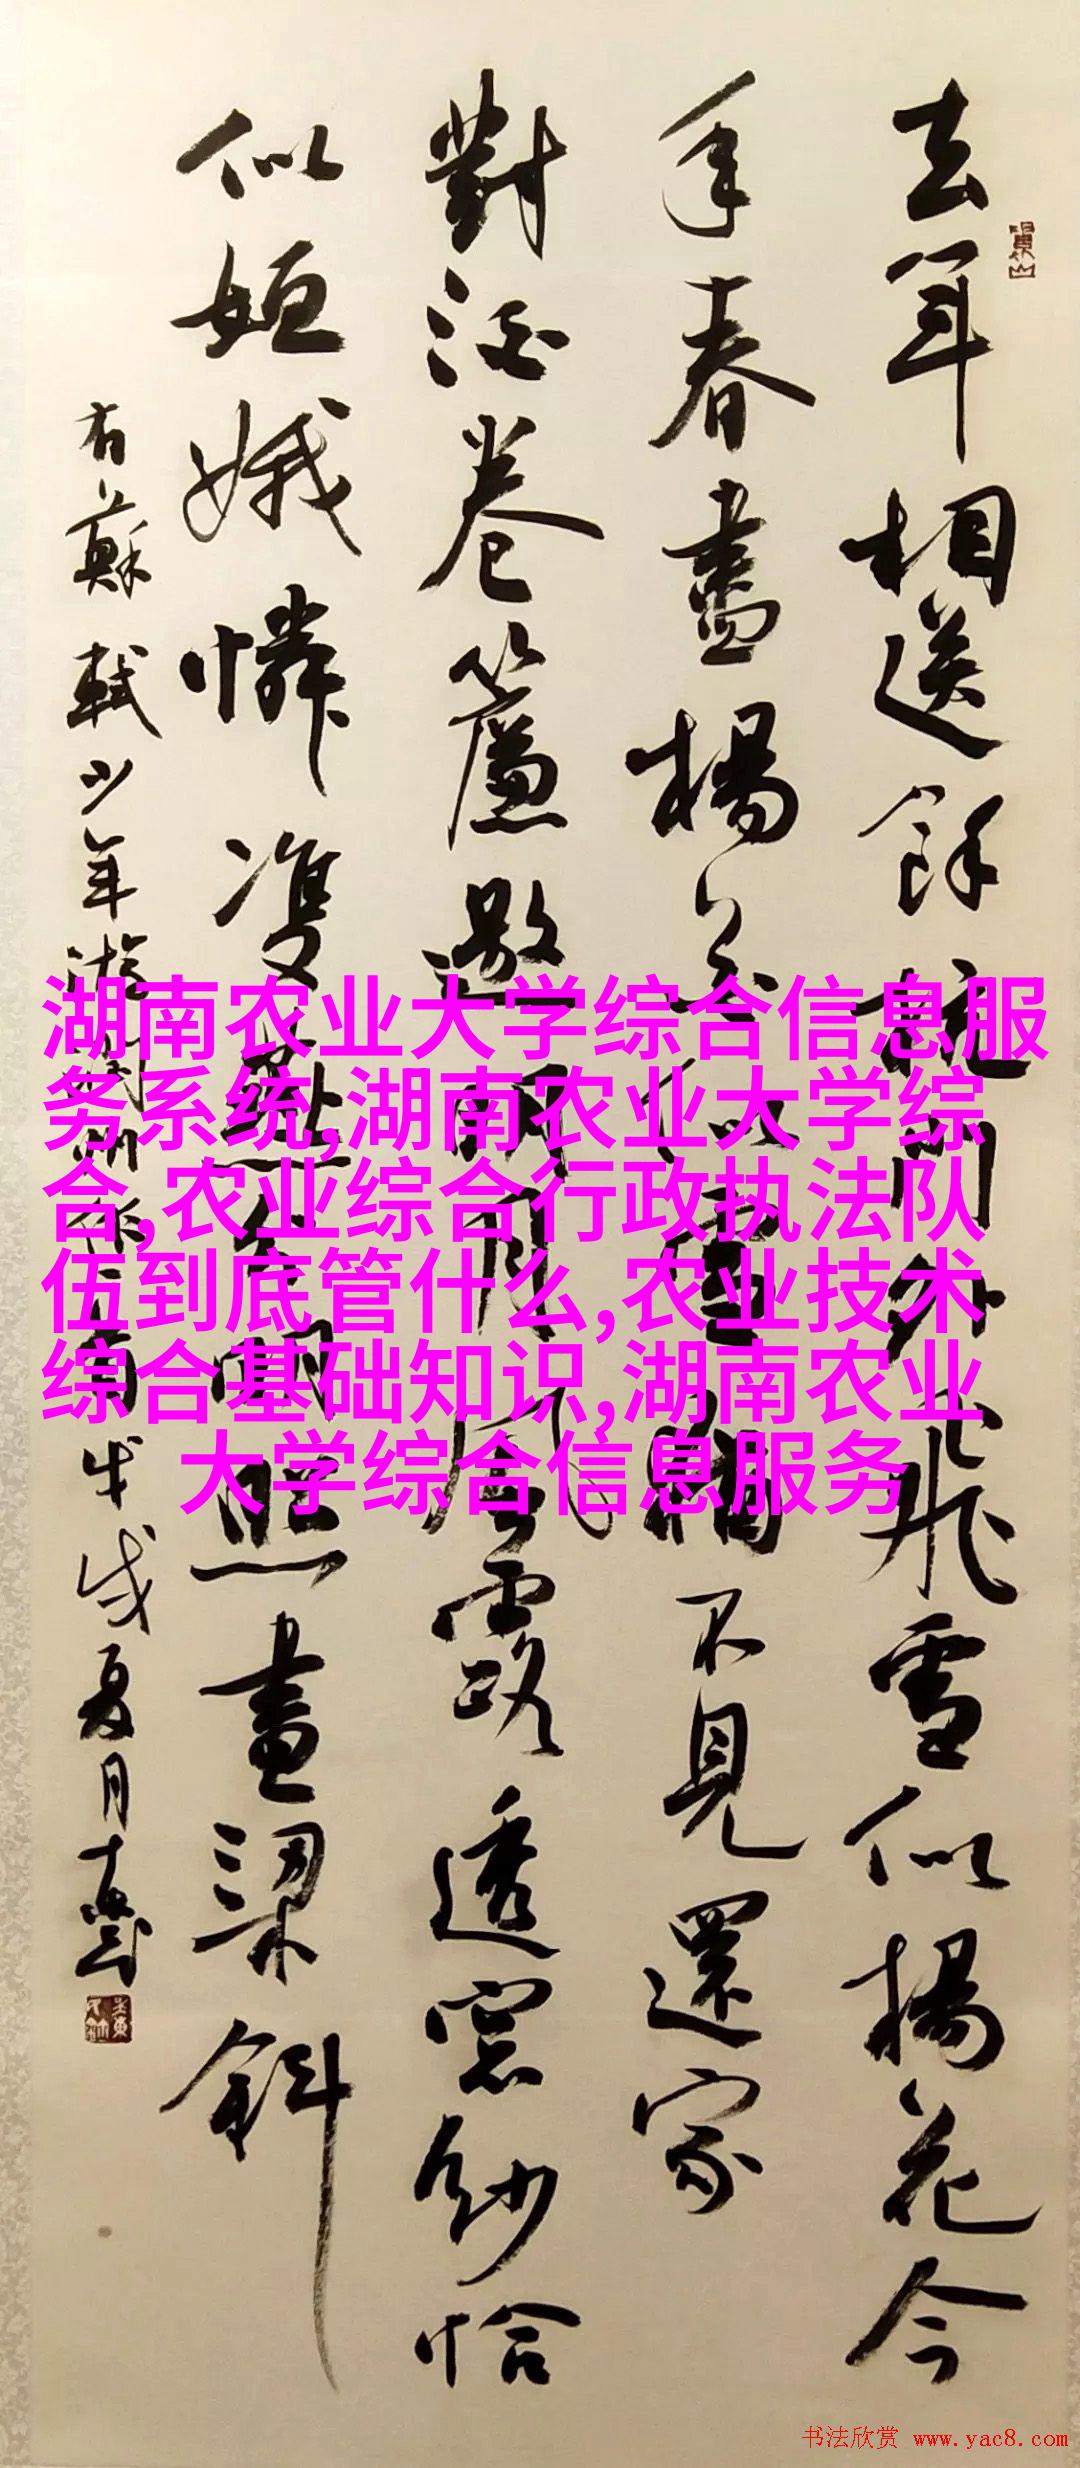 去年相送餘杭門外飛雪似楊花今
年春盡楊花似雪猶不見還家
對酒卷簾邀明月風露透窓紗恰
似姮娥憐雙燕分明照畫梁斜
右蘇軾少年游潤州作
戊戌夏月
湖南农业大学综合信息服
务系统,湖南农业大学综
合,农业综合行政执法队
伍到底管什么,农业技术
综合基础知识,湖南农业
大学综合信息服务
书法欣赏 www.yac8.com